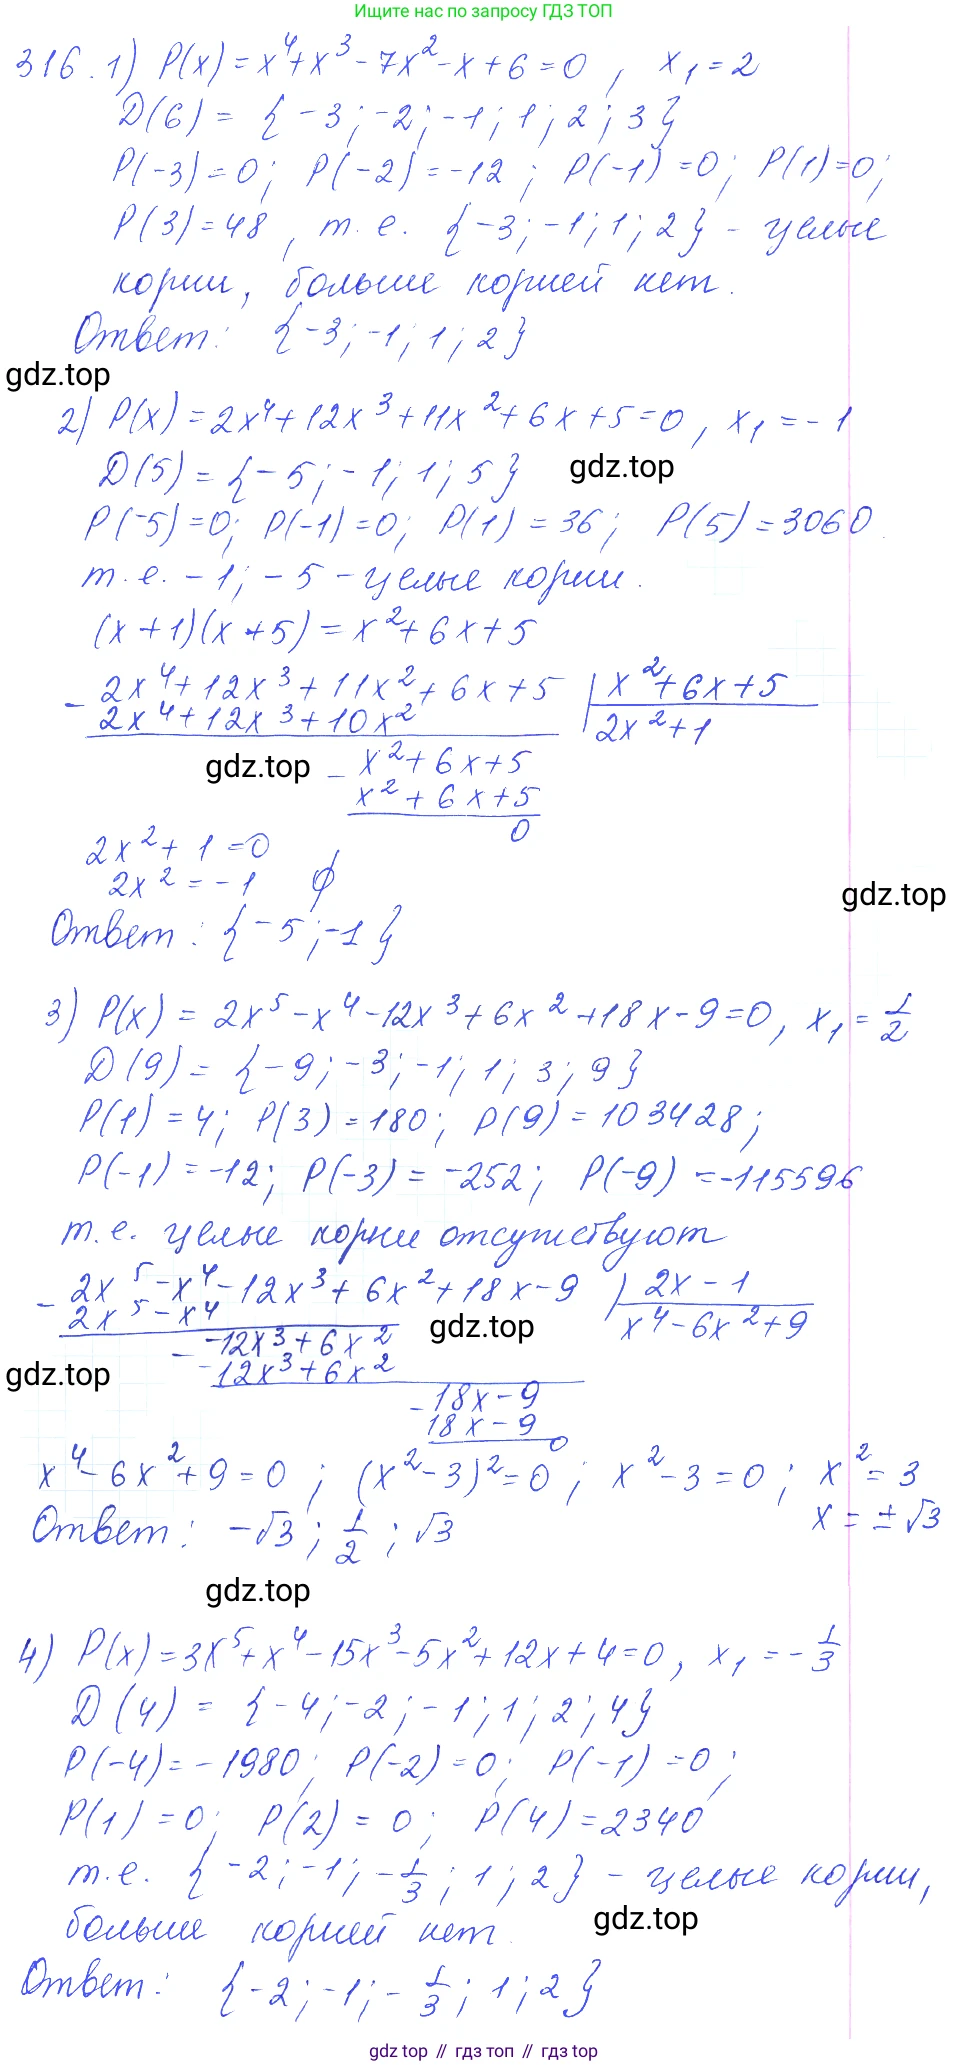 Ищите нас по запросу ГДЗ ТОП
316. 1) P(x) = x⁴ + x³ - 7x² - x + 6 = 0, x₁ = 2
D(6) = {-3; -2; -1; 1; 2; 3}
P(-3) = 0; P(-2) = -12; P(-1) = 0; P(1) = 0;
P(3) = 48, т.е. {-3; -1; 1; 2} - целые
корни, больше корней нет.
Ответ: {-3; -1; 1; 2}
gdz.top
2) P(x) = 2x⁴ + 12x³ + 11x² + 6x + 5 = 0, x₁ = -1
D(5) = {-5; -1; 1; 5}
gdz.top
P(-5) = 0; P(-1) = 0; P(1) = 36; P(5) = 3060.
т.е. -1; -5 - целые корни.
(x + 1)(x + 5) = x² + 6x + 5
- 2x⁴ + 12x³ + 11x² + 6x + 5 | x² + 6x + 5
2x⁴ + 12x³ + 10x² 2x² + 1
gdz.top
- x² + 6x + 5
x² + 6x + 5
0
2x² + 1 = 0
2x² = -1 ∅
gdz.top
Ответ: {-5; -1}
3) P(x) = 2x⁵ - x⁴ - 12x³ + 6x² + 18x - 9 = 0, x₁ = 1/2
D(9) = {-9; -3; -1; 1; 3; 9}
P(1) = 4; P(3) = 180; P(9) = 103428;
P(-1) = -12; P(-3) = -252; P(-9) = -115596
т.е. целые корни отсутствуют
- 2x⁵ - x⁴ - 12x³ + 6x² + 18x - 9 | 2x - 1
2x⁵ - x⁴ x⁴ - 6x² + 9
gdz.top
- -12x³ + 6x²
-12x³ + 6x²
gdz.top
- 18x - 9
18x - 9
0
x⁴ - 6x² + 9 = 0; (x² - 3)² = 0; x² - 3 = 0; x² = 3
x = ±√3
Ответ: -√3; 1/2; √3
gdz.top
4) P(x) = 3x⁵ + x⁴ - 15x³ - 5x² + 12x + 4 = 0, x₁ = -1/3
D(4) = {-4; -2; -1; 1; 2; 4}
P(-4) = -1980; P(-2) = 0; P(-1) = 0;
P(1) = 0; P(2) = 0; P(4) = 2340
т.е. {-2; -1; -1/3; 1; 2} - целые корни,
больше корней нет.
gdz.top
Ответ: {-2; -1; -1/3; 1; 2}
gdz.top // гдз топ // gdz top